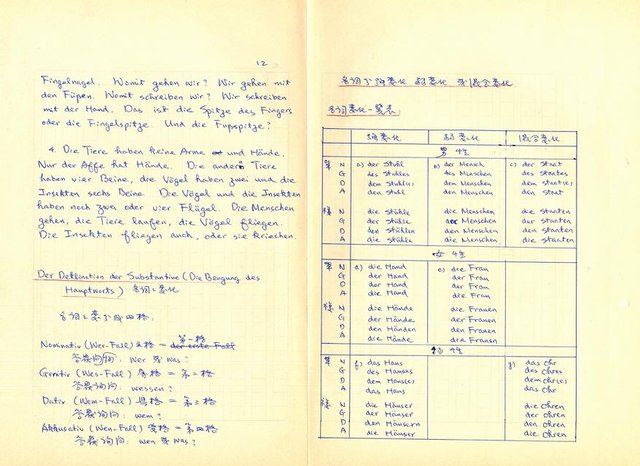 12
Fingelnagel. Womit gehen wir? Wir gehen mit
den Füßen. Womit schreiben wir? Wir schreiben
mit der Hand. Das ist die Spitze des Fingers
oder die Fingelspitze. Und die Fußspitze?
4. Die Tiere haben keine Arme und Hände.
Nur der Affe hat Hände. Die andern Tiere
haben vier Beine, die Vögel haben zwei und die
Insekten sechs Beine. Die Vögel und die Insekten
haben noch zwei oder vier Flügel. Die Menschen
gehen, die Tiere laufen, die Vögel fliegen.
Die Insekten fliegen auch, oder sie kriechen.
Der Deklination der Substantive (Die Beugung des
Hauptworts) 名詞之変化
名詞之変分成四格:
第一格
Nominativ (Wer-Fall) 主格 = der erste Fall
答案詢問: Wer 或 Was?
Genitiv (Wes-Fall) = 第二格
答案詢問: wessen?
Dativ (Wem-Fall) = 第三格
答案詢問: wem?
Akkusativ (Wen-Fall) 受格 = 第四格
答案詢問: wen 或 Was?
名詞分強変化 弱変化 和混合変化
名詞変化一覽表:
強変化 弱変化 混合変化
男性
單 N a) der Stuhl b) der Mensch c) der Staat
G des Stuhles des Menschen des Staates
D dem Stuhl(e) dem Menschen dem Staat(e)
A den Stuhl den Menschen den Staat
複 N die Stühle die Menschen die Staaten
G der Stühle der Menschen der Staaten
D den Stühlen den Menschen den Staaten
A die Stühle die Menschen die Staaten
女性
單 N d) die Hand e) die Frau
G der Hand der Frau
D der Hand der Frau
A die Hand die Frau
複 N die Hände die Frauen
G der Hände der Frauen
D den Händen den Frauen
A die Hände die Frauen
中性
單 N f) das Haus g) das Ohr
G des Hauses des Ohres
D dem Haus(e) dem Ohr(e)
A das Haus das Ohr
複 N die Häuser die Ohren
G der Häuser der Ohren
D den Häusern den Ohren
A die Häuser die Ohren